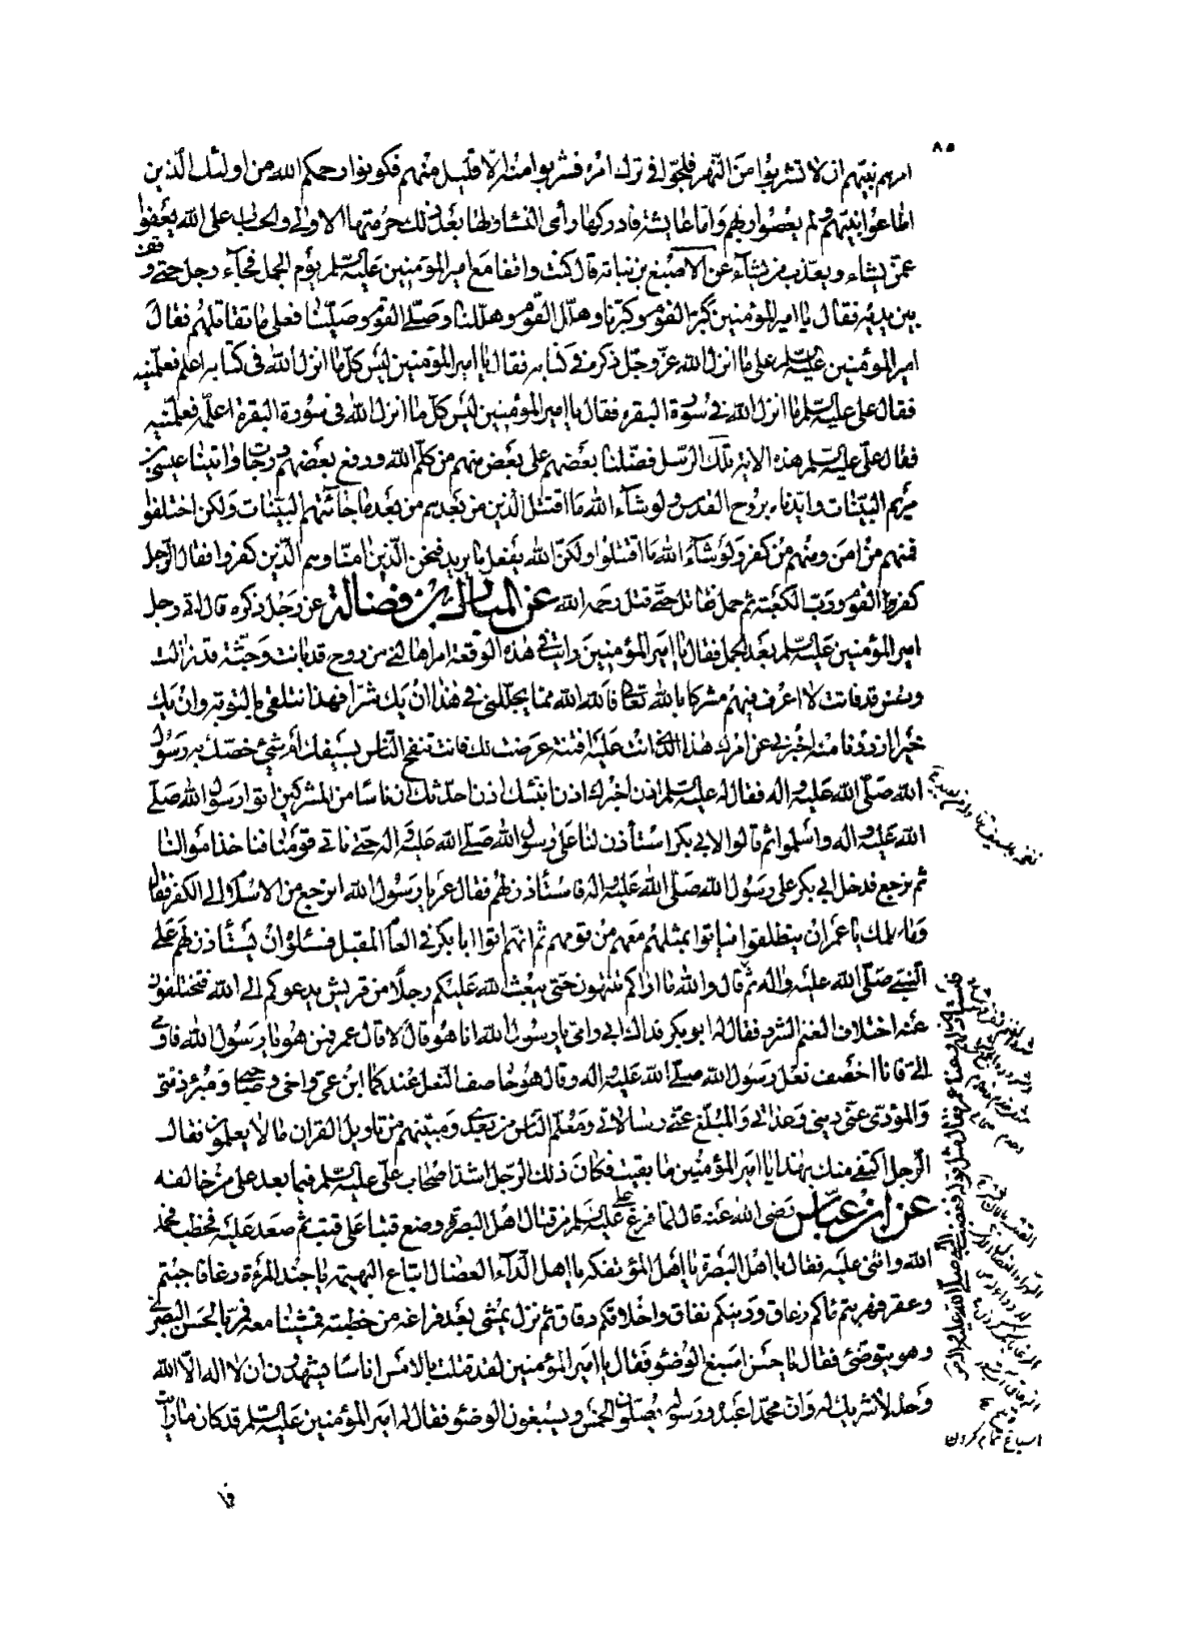 ٨٥
امرهم نبيّهم ان لا تشربوا من النّهر فلجّوا في ترك امره فشربوا منه الّا قليل منهم فكونوا رحمكم الله من اولئك الّذين
اطاعوا نبيّهم ولم يعصوا ربهم وامّا عايشة فادركها رأى النساء ولها بعد ذلك حرمتها الاولى والحساب على الله يعفو
عمّن يشاء ويعذّب من يشاء عن الاصبغ بن نباتة قال كنت واقفا مع امير المؤمنين عليه السلم يوم الجمل فجاء رجل حتى وقف
بين يديه فقال يا امير المؤمنين كبّر القوم وكبّرنا وهلّل القوم وهلّلنا وصلّى القوم وصلّينا فعلى ما نقاتلهم فقال
امير المؤمنين عليه السلم على ما انزل الله عزّ وجلّ ذكره في كتابه فقال يا امير المؤمنين ليس كلّ ما انزل الله في كتابه اعلم فعلّمنيه
فقال على عليه السلم ما انزل الله في سورة البقره فقال يا امير المؤمنين ليس كلّ ما انزل الله في سورة البقرة اعلمه فعلّمنيه
فقال علىّ عليه السلم هذه الاية تلك الرّسل فضّلنا بعضهم على بعض منهم من كلّم الله ورفع بعضهم درجات واتينا عيسى بن
مريم البيّنات وايّدناه بروح القدس ولو شاء الله ما اقتتل الّذين من بعدهم من بعد ما جائتهم البيّنات ولكن اختلفوا
فمنهم من امن ومنهم من كفر ولو شاء الله ما اقتتلوا ولكنّ الله يفعل ما يريد فنحن الّذين امنّا وهم الّذين كفروا فقال الرّجل
كفر القوم وربّ الكعبة ثم حمل فقاتل حتّى قتل رحمه الله عن المبارك بن فضالة عن رجل ذكره قال اتى رجل
امير المؤمنين عليه السلم بعد الجمل فقال يا امير المؤمنين رايت في هذه الوقعة امرا هالني من روح قد بانت وجثّة قد زالت
ونفس قد فاتت لا اعرف فيهم مشركا بالله تعالى فالله الله ممّا يجلّلني في هذا ان يك شرّا فهذا نتلقى بالتوبة وان يك
خيرا ازددنا منه اخبرني عن امرك هذا الذي انت عليه افتنة عرضت لك فانت تنفح النّاس بسيفك ام شيئ خصّك به رسول
الله صلّى الله عليه واله فقال له عليه السلم اذن اخبرك اذن انبئك اذن احدّثك ان ناسا من المشركين اتوا رسول الله صلّى
الله عليه واله واسلموا ثم قالوا لابي بكر استأذن لنا على رسول الله صلّى الله عليه واله حتّى ناتى قومنا فناخذ اموالنا
ثم نرجع فدخل ابي بكر على رسول الله صلّى الله عليه واله فاستأذن لهم فقال عمر يا رسول الله انرجع من الاسلام الى الكفر فقال
وما علمك يا عمر ان ينطلقوا فيأتوا بمثلهم معهم من قومهم ثم انهم اتوا ابا بكر في العام المقبل فسئلوه ان يستأذن لهم على
النّبي صلّى الله عليه واله ثم قال والله ما اراكم تنتهون حتى يبعث الله عليكم رجلا من قريش يدعوكم الى الله فتختلفون
عنه اختلاف الغنم الشرد فقال له ابو بكر فداك ابي وامّي يا رسول الله انا هو قال لا قال عمر فمن هو يا رسول الله فاومى
الىّ فانا اخصف نعل رسول الله صلى الله عليه واله وقال هو خاصف النعل عندكما ابن عمّي واخى وصاحبي ومبرئ ذمّتى
والمؤدّى عنّى ديني وعداتي والمبلّغ عنّي رسالاتي ومعلّم النّاس من بعدي ومبيّنهم من تاويل القران ما لا يعلمون فقال
الرّجل اكتفى منك بهذا يا امير المؤمنين ما بقيت فكان ذلك الرّجل اشدّ اصحاب علىّ عليه السلم فيما بعد على من خالفه
عن ابن عبّاس رضى الله عنه قال لمّا فرغ علي عليه السلم من قتال اهل البصرة وضع قتبا على قتب ثم صعد عليه فخطب فحمد
الله واثنى عليه فقال يا اهل البصرة يا اهل المؤتفكه يا اهل الدّاء العضال اتباع البهيمة يا جند المرءة رغا فاجبتم
وعقر فهربتم ماءكم زعاق ودينكم نفاق واخلاقكم دقاق ثم نزل يمشي بعد فراغه من خطبته فمشينا معه فمرّ بالحسن البصري
وهو يتوضّى فقال يا حسن اسبغ الوضوء فقال يا امير المؤمنين لقد قتلت بالامس اناسا يشهدون ان لا اله الّا الله
وحده لا شريك له وان محمّدا عبده ورسوله يصلّون الخمس ويسبغون الوضوء فقال له امير المؤمنين عليه السلم قد كان ما رايت
اسباغ تمام كردن
فما